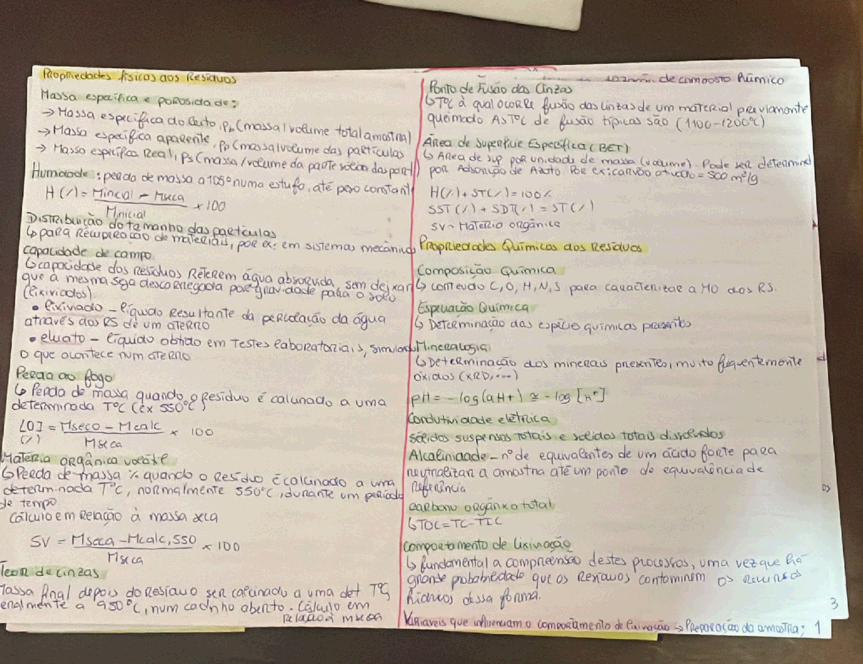 Propriedades físicas dos Resíduos
Massa específica e porosidade:
→ Massa específica do leito, ρb (massa/volume total amostra)
→ Massa específica aparente, ρp (massa/volume das partículas
→ Massa específica Real, ρs (massa/volume da parte sólida da part)
Humidade: perda de massa a 105° numa estufa, até peso constante
H (%) = Minicial - Mseca / Minicial × 100
Distribuição do tamanho das partículas
↳ para Recuperação de materiais, por ex: em sistemas mecânicos
capacidade de campo
↳ capacidade dos Resíduos Reterem água absorvida, sem deixar
que a mesma seja descarregada por gravidade para o solo
(lixiviados)
• lixiviado - líquido Resultante da percolação da água
através dos RS de um aterro
• eluato - líquido obtido em Testes laboratoriais, simulando
o que acontece num aterro
Perda ao fogo
↳ Perda de massa quando o Resíduo é calcinado a uma
determinada TºC (ex 550ºC)
LOI (%) = Mseco - Mcalc / Mseca × 100
Matéria orgânica volátil
↳ Perda de massa % quando o Resíduo é calcinado a uma
determinada TºC, normalmente 550ºC, durante um período
de tempo
Cálculo em Relação à massa seca
SV = Mseca - Mcalc,550 / Mseca × 100
Teor de cinzas
Massa final depois do Resíduo ser calcinado a uma det TºC,
eralmente a 950ºC, num cadinho aberto. Cálculo em
Relação à m seca
de composto húmico
Ponto de Fusão das Cinzas
↳ TºC à qual ocorre fusão das cinzas de um material previamente
queimado. As TºC de fusão típicas são (1100-1200ºC)
Área de Superfície Específica (BET)
↳ Área de sup por unidade de massa (volume). Pode ser determina
por Adsorção de Azoto. Por ex: carvão ativado = 500 m²/g
H(%) + ST(%) = 100%
SST(%) + SDT(%) = ST(%)
SV - Matéria orgânica
Propriedades Químicas dos Resíduos
Composição Química
↳ conteúdo C, O, H, N, S para caracterizar a MO dos RS.
Especiação Química
↳ Determinação das espécies químicas presentes
Mineralogia
↳ Determinação dos minerais presentes, muito frequentemente
óxidos (XRD, ...)
pH = -log(aH+) ≅ -log [H+]
Condutividade elétrica
sólidos suspensos totais e sólidos totais dissolvidos
Alcalinidade - nº de equivalentes de um ácido forte para
neutralizar a amostra até um ponto de equivalência de
Referência
carbono orgânico total
↳ TOC = TC - TIC
Comportamento de lixiviação
↳ fundamental a compreensão destes processos, uma vez que há
grande probabilidade que os Resíduos contaminem os Recursos
hídricos dessa forma.
3
Variáveis que influenciam o comportamento de lixiviação → Preparação da amostra; 1